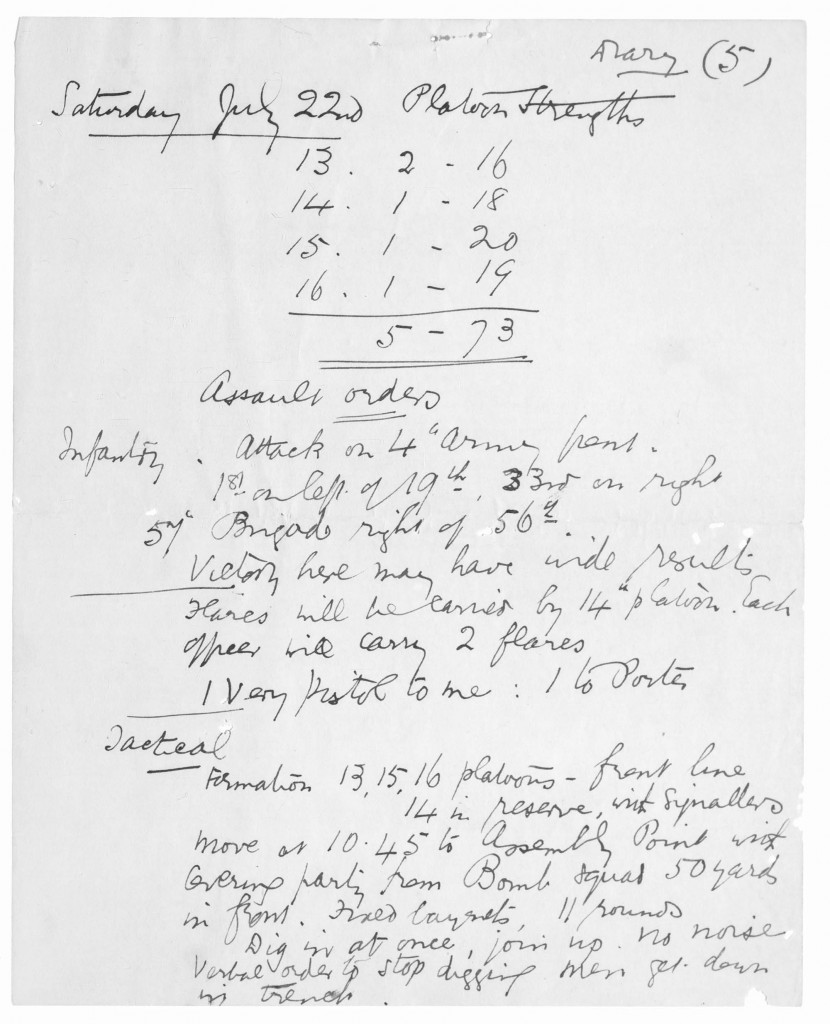 Diary (5)
Saturday July 22nd Platoon Strengths
13. 2 - 16
14. 1 - 18
15. 1 - 20
16. 1 - 19
5 - 73
Assault orders
Infantry. Attack on 4th Army front.
1st on left of 19th, 33rd on right
57th Brigade right of 56th.
Victory here may have wide results
Flares will be carried by 14th platoon. Each
officer will carry 2 flares
1 Very pistol to me : 1 to Porter
Tactical
Formation 13, 15, 16 platoons - front line
14 in reserve, with Signallers
Move at 10.45 to Assembly Point with
Covering party from Bomb squad 50 yards
in front. Fixed bayonets, 11 rounds
Dig in at once, join up. No noise
Verbal order to stop digging men get down
in trench.